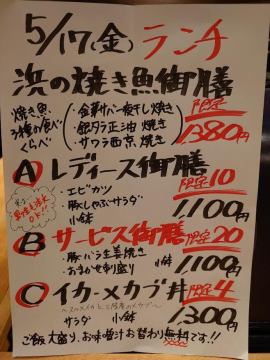 5/17(金) ランチ
浜の焼き魚御膳
焼き魚
3種の食べ
くらべ
・金華サバ一夜干し焼き
・銀ダラ正油焼き
・サワラ西京焼き
限定
1380円
A レディース御膳
限定10
・エビカツ
・豚しゃぶサラダ
・小鉢
1,100円
男性も注文
OK!!
B サービス御膳 限定20
・豚バラ生姜焼き
・おまかせ刺盛り 小鉢
1,100円
C イカ・メカブ丼 限定4
サラダ 小鉢
1,300円
ご飯大盛り、お味噌汁お替わり無料です!!